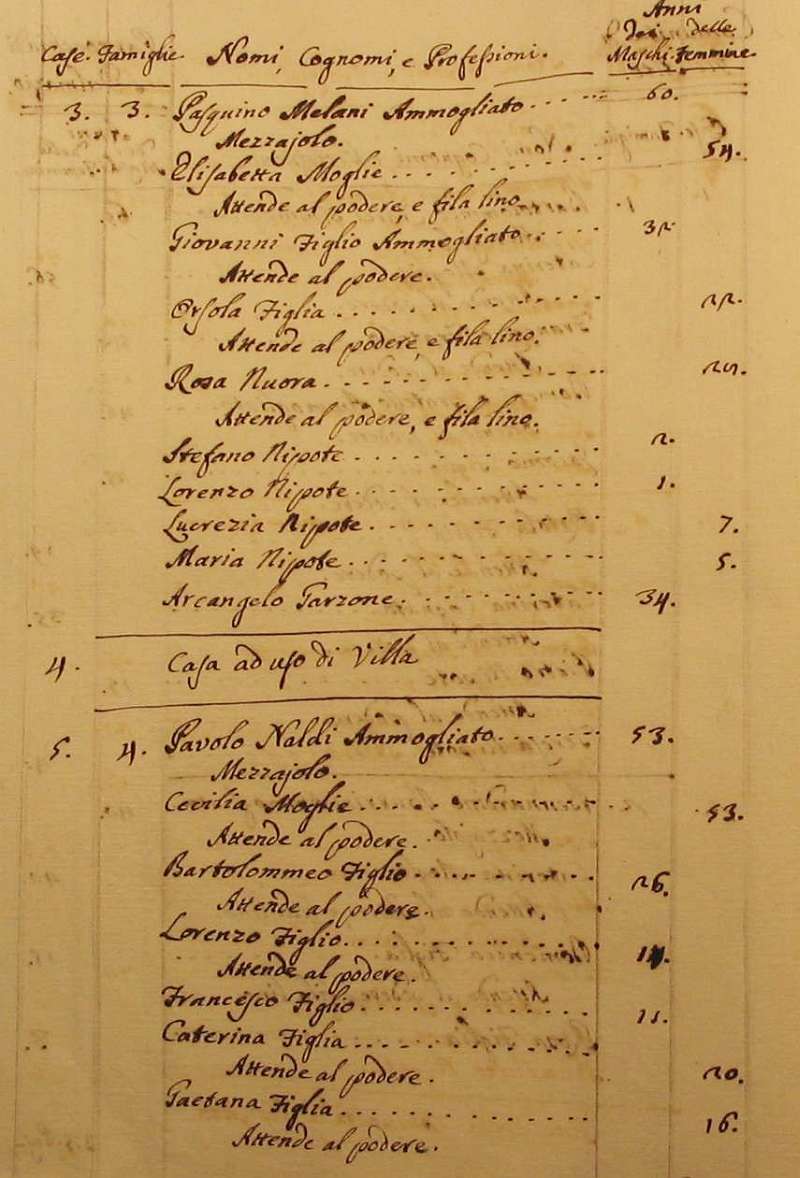 Anni
Dei delle
Case. Famiglie. Nomi, Cognomi, e Professioni. Maschi. Femmine.
3. 3. Pasquino Melani Ammogliato 60.
Mezzajolo.
Elisabetta Moglie 54.
Attende al podere, e fila lino.
Giovanni Figlio Ammogliato 32
Attende al podere.
Orsola Figlia 22.
Attende al podere, e fila lino.
Rosa Nuora 25.
Attende al podere, e fila lino.
Stefano Nipote 2.
Lorenzo Nipote 1.
Lucrezia Nipote 7.
Maria Nipote 5.
Arcangelo Garzone 34.
4. Casa ad uso di Villa
5. 4. Pavolo Naldi Ammogliato 53.
Mezzajolo.
Cecilia Moglie 53.
Attende al podere.
Bartolommeo Figlio 26.
Attende al podere.
Lorenzo Figlio 14.
Attende al podere.
Francesco Figlio 11.
Caterina Figlia 20.
Attende al podere.
Gaetana Figlia 16.
Attende al podere.